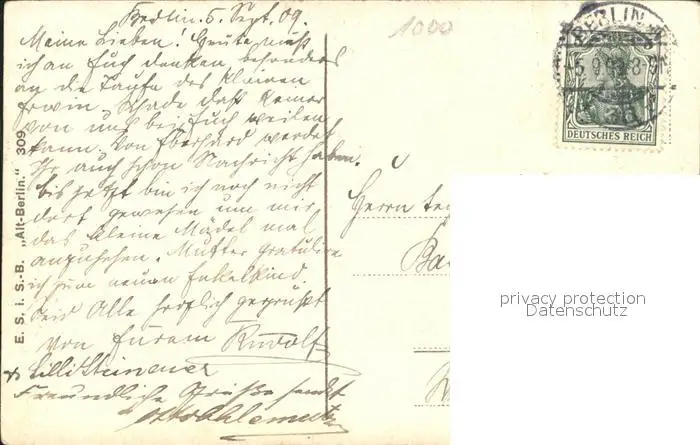 Berlin. 5. Sept. 09.
Meine Lieben! Heute muß
ich an Euch denken, besonders
an die Taufe des kleinen
Erwin. Schade daß keiner
von uns bei Euch weilen
kann. Von Eberhard werdet
Ihr auch schon Nachricht haben.
bis jetzt bin ich noch nicht
dort gewesen um mir
das kleine Mädel mal
anzusehen. Mutter gratuliere
ich zum neuen Enkelkind
Seid Alle herzlich gegrüßt
von Eurem Rudolf
Freundliche Grüße sendet
1000
BERLIN
5.9.09 8-9
DEUTSCHES REICH
Herrn
E. S. i. S.-B. „Alt-Berlin." 309
privacy protection
Datenschutz